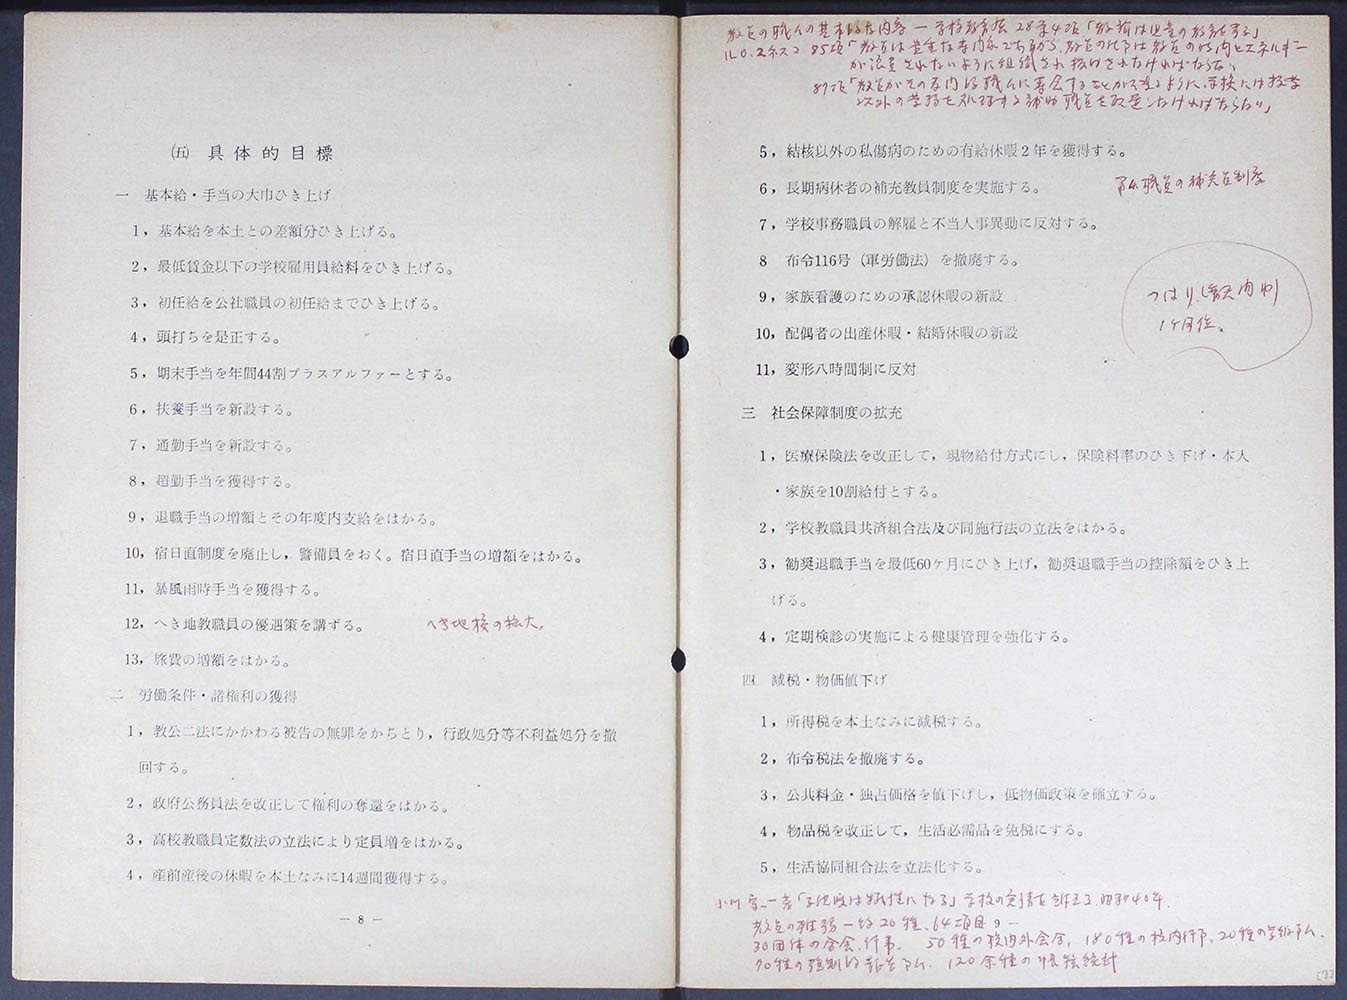 ㈤ 具体的目標
一 基本給・手当の大巾ひき上げ
1，基本給を本土との差額分ひき上げる。
2，最低賃金以下の学校雇用員給料をひき上げる。
3，初任給を公社職員の初任給までひき上げる。
4，頭打ちを是正する。
5，期末手当を年間44割プラスアルファーとする。
6，扶養手当を新設する。
7，通勤手当を新設する。
8，超勤手当を獲得する。
9，退職手当の増額とその年度内支給をはかる。
10，宿日直制度を廃止し，警備員をおく。宿日直手当の増額をはかる。
11，暴風雨時手当を獲得する。
12，へき地教職員の優遇策を講ずる。 へき地校の拡大，
13，旅費の増額をはかる。
二 労働条件・諸権利の獲得
1，教公二法にかかわる被告の無罪をかちとり，行政処分等不利益処分を撤
回する。
2，政府公務員法を改正して権利の奪還をはかる。
3，高校教職員定数法の立法により定員増をはかる。
4，産前産後の休暇を本土なみに14週間獲得する。
— 8 —
教員の職ムの基本的な内容 — 学校教育法 28条4項「教諭は児童の教育を
ILO.ユネスコ 85項「教員は貴重な専門家であるから，教員の仕事は教員の時間とエネルギー
が浪費されないように組織され援助されなければならない
87項「教員がその専門的職ムに専念することができるように，学校には授業
以外の業務を処理する補助職員を配置しなければならない」
5，結核以外の私傷病のための有給休暇2年を獲得する。
6，長期病休者の補充教員制度を実施する。
事ム職員の補充員制度
7，学校事務職員の解雇と不当人事異動に反対する。
8 布令116号（軍労働法）を撤廃する。
9，家族看護のための承認休暇の新設
つはり
1ヶ月位。
10，配偶者の出産休暇・結婚休暇の新設
11，変形八時間制に反対
三 社会保障制度の拡充
1，医療保険法を改正して，現物給付方式にし，保険料率のひき下げ・本人
・家族を10割給付とする。
2，学校教職員共済組合法及び同施行法の立法をはかる。
3，勧奨退職手当を最低60ケ月にひき上げ，勧奨退職手当の控除額をひき上
げる。
4，定期検診の実施による健康管理を強化する。
四 減税・物価値下げ
1，所得税を本土なみに減税する。
2，布令税法を撤廃する。
3，公共料金・独占価格を値下げし，低物価政策を確立する。
4，物品税を改正して，生活必需品を免税にする。
5，生活協同組合法を立法化する。
「子供は犠牲になる」学校の実情を訴える．昭和40年．
教員の雑務 — 約20種，64項目
9 —
30団体の会合，行事， 50種の校内外会合，180種の校内行事，20種の学級事ム，
70種の強制的報告事ム． 120余種の帳簿統計
[7]